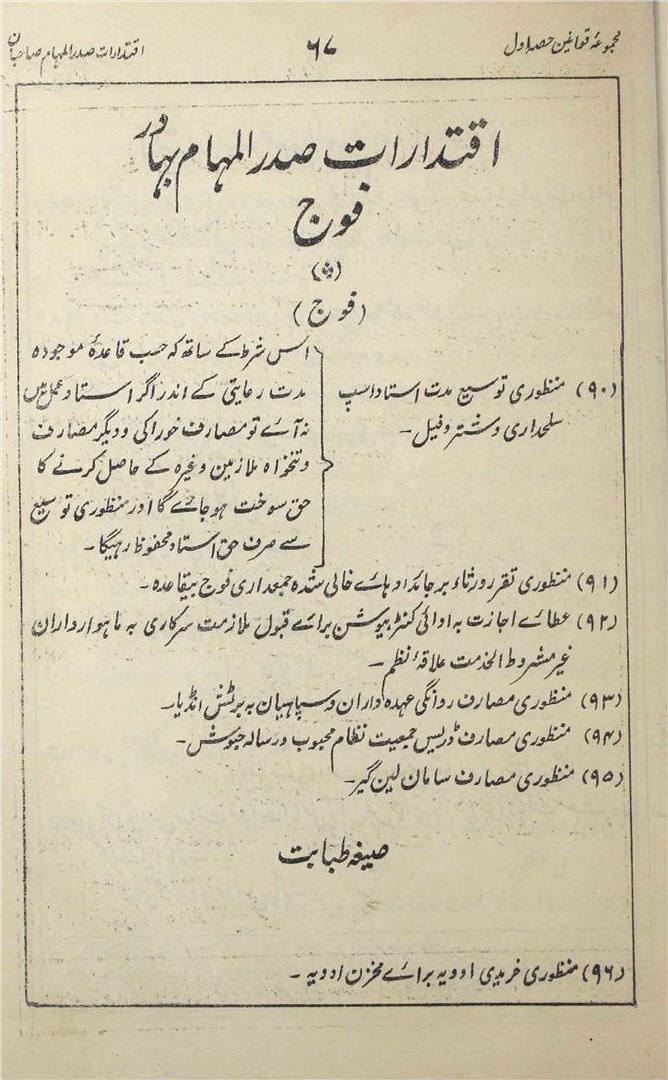 مجموعۂ قوانین حصہ اول
۶۷
اقتدارات صدر المہام صاحبان
اقتدارات صدر المہام بہادر
فوج
(فوج)
(۹۰) منظوری توسیع مدت استاد اسپ
سلحداری و شتر و فیل۔
اس شرط کے ساتھ کہ حسب قاعدۂ موجودہ
مدت رعایتی کے اندر اگر استاد عمل میں
نہ آئے تو مصارف خوراکی و دیگر مصارف
و تنخواہ ملازمین وغیرہ کے حاصل کرنے کا
حق سوخت ہو جائے گا اور منظوری توسیع
سے صرف حق استاد محفوظ رہیگا۔
(۹۱) منظوری تقرر ورثاء بر جائداد ہائے خالی شدہ جمعداری فوج بیقاعدہ۔
(۹۲) عطائے اجازت بہ ادائی کنٹریبیوشن برائے قبول ملازمت سرکاری بہ ماہوارداران
غیر مشروط الخدمت علاقۂ نظم۔
(۹۳) منظوری مصارف روانگی عہدہ داران و سپاہیان بہ برٹش انڈیا۔
(۹۴) منظوری مصارف ڈریس جمعیت نظام محبوب و رسالہ حبوش۔
(۹۵) منظوری مصارف سامان لین گیر۔
صیغہ طبابت
(۹۶) منظوری خریدی ادویہ برائے مخزن ادویہ۔